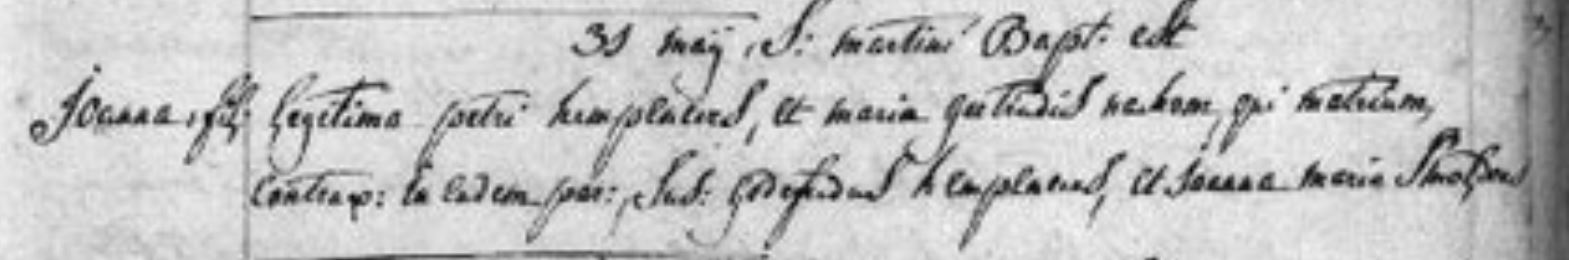 31 maij, S: martini Bapt: est
Joanna, fil: legitima petri hemplaers, et maria gertrudis, qui matrim,
Contrax: in eadem par: Sus: godefridus hemplaers, et Joanna maria